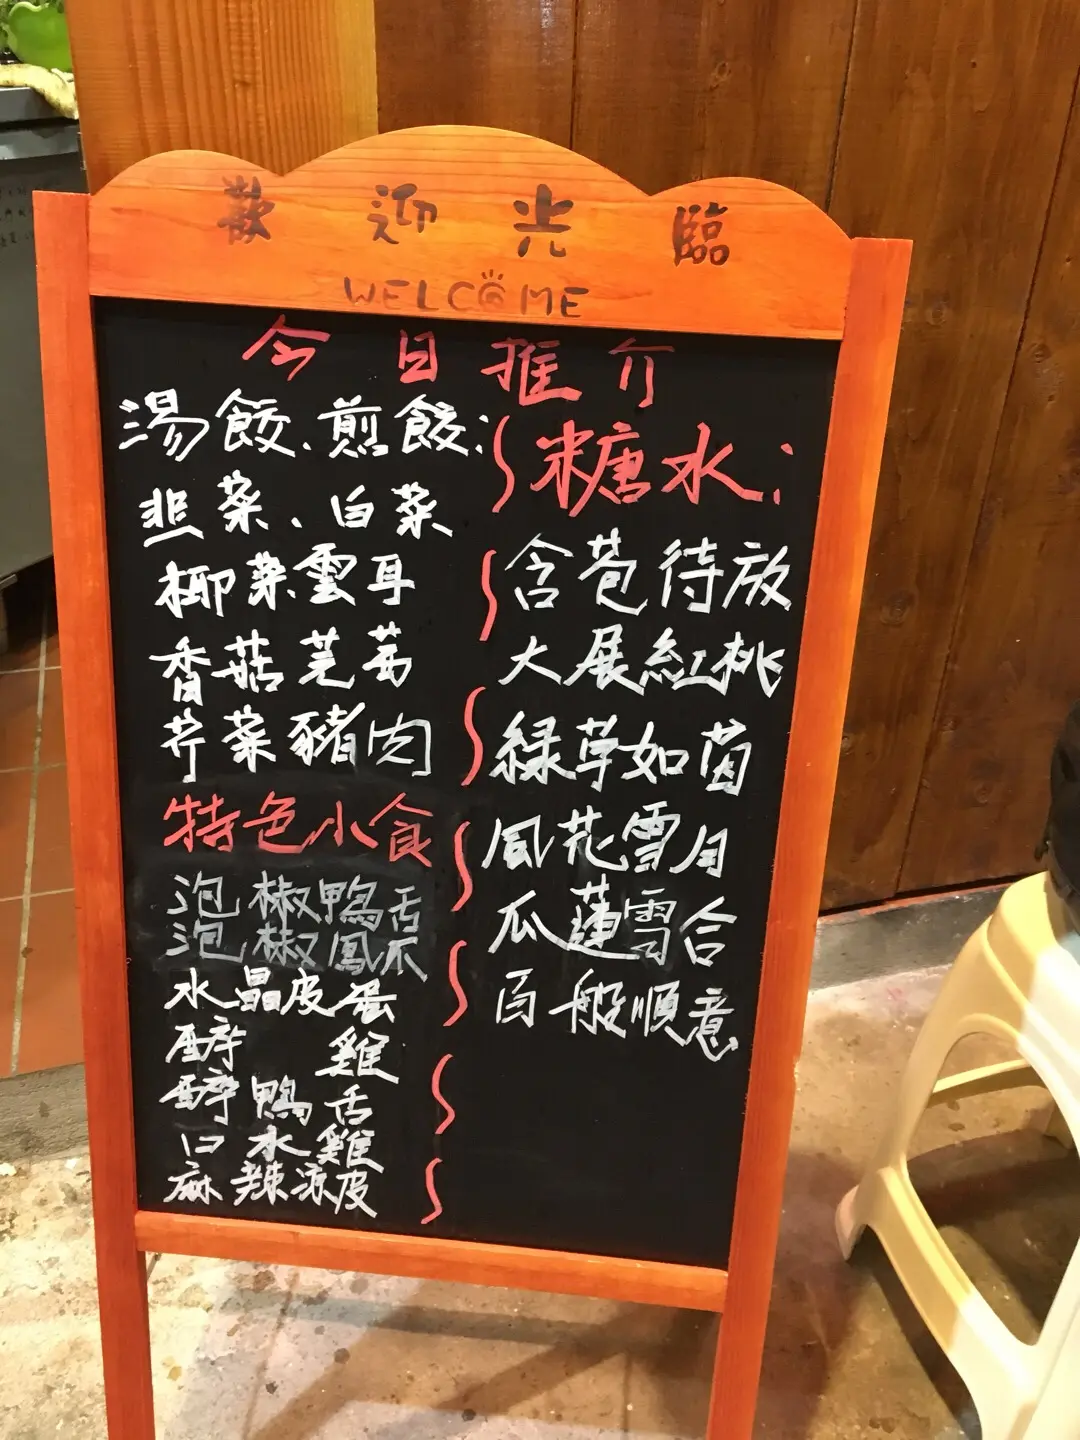 歡迎光臨
WELCOME
今日推介
湯餃、煎餃:
韮菜、白菜
椰菜雲耳
香菇芫茜
芹菜豬肉
特色小食
泡椒鴨舌
泡椒鳳爪
水晶皮蛋
醉雞
醉鴨舌
口水雞
麻辣涼皮
糖水:
含苞待放
大展紅桃
綠草如茵
風花雪月
瓜蓮雪合
百般順意